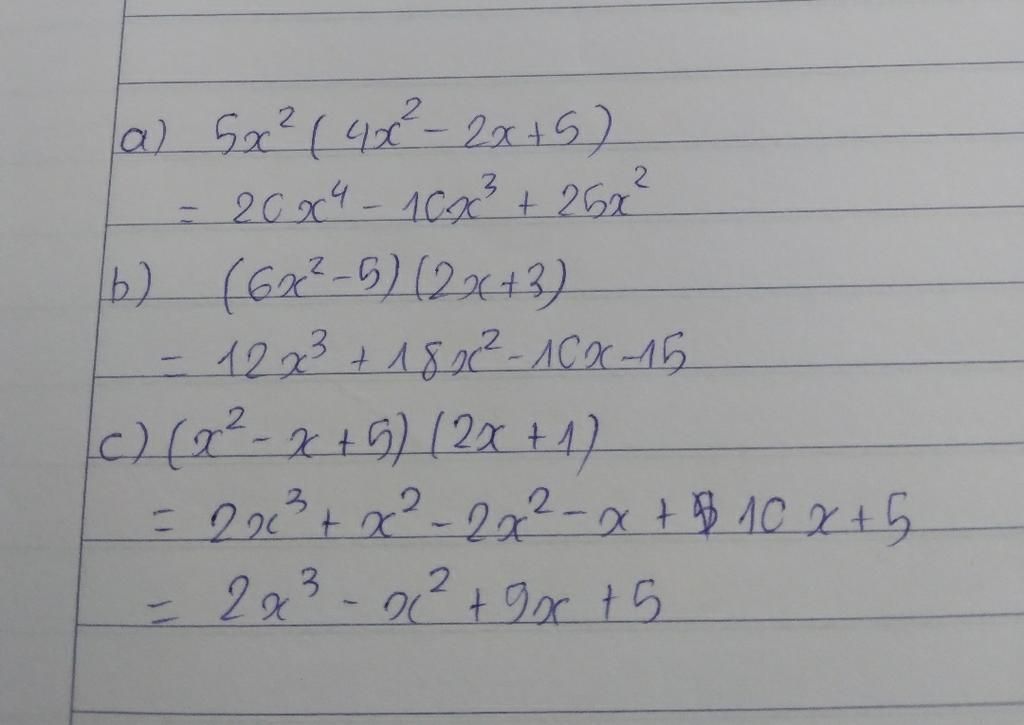 a) 5x² ( 4x² - 2x + 5 )
= 20x⁴ - 10x³ + 25x²
b) (6x² - 5) (2x + 3)
= 12x³ + 18x² - 10x - 15
c) (x² - x + 5) (2x + 1)
= 2x³ + x² - 2x² - x + 10x + 5
= 2x³ - x² + 9x + 5